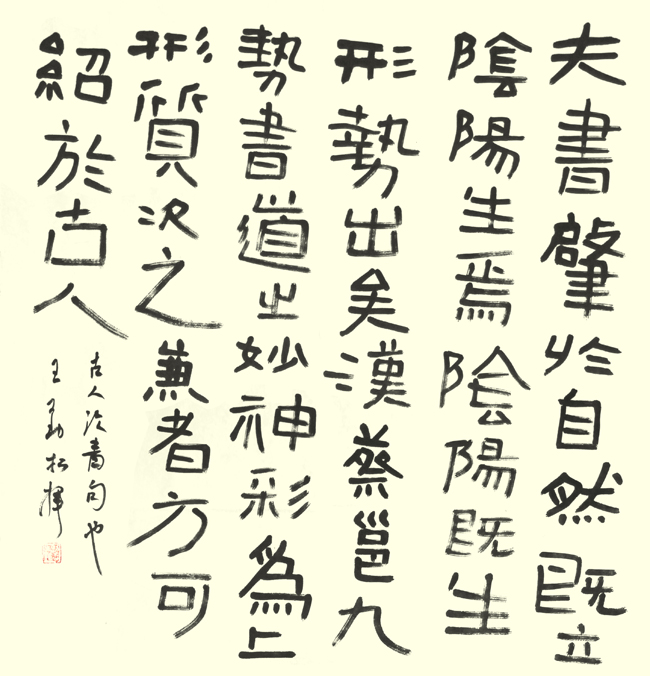 夫書肇於自然既立
陰陽生焉陰陽既生
形勢出矣漢蔡邕九
勢書道之妙神彩爲上
形質次之兼者方可
紹於古人
古人论書句也
王勤松揮